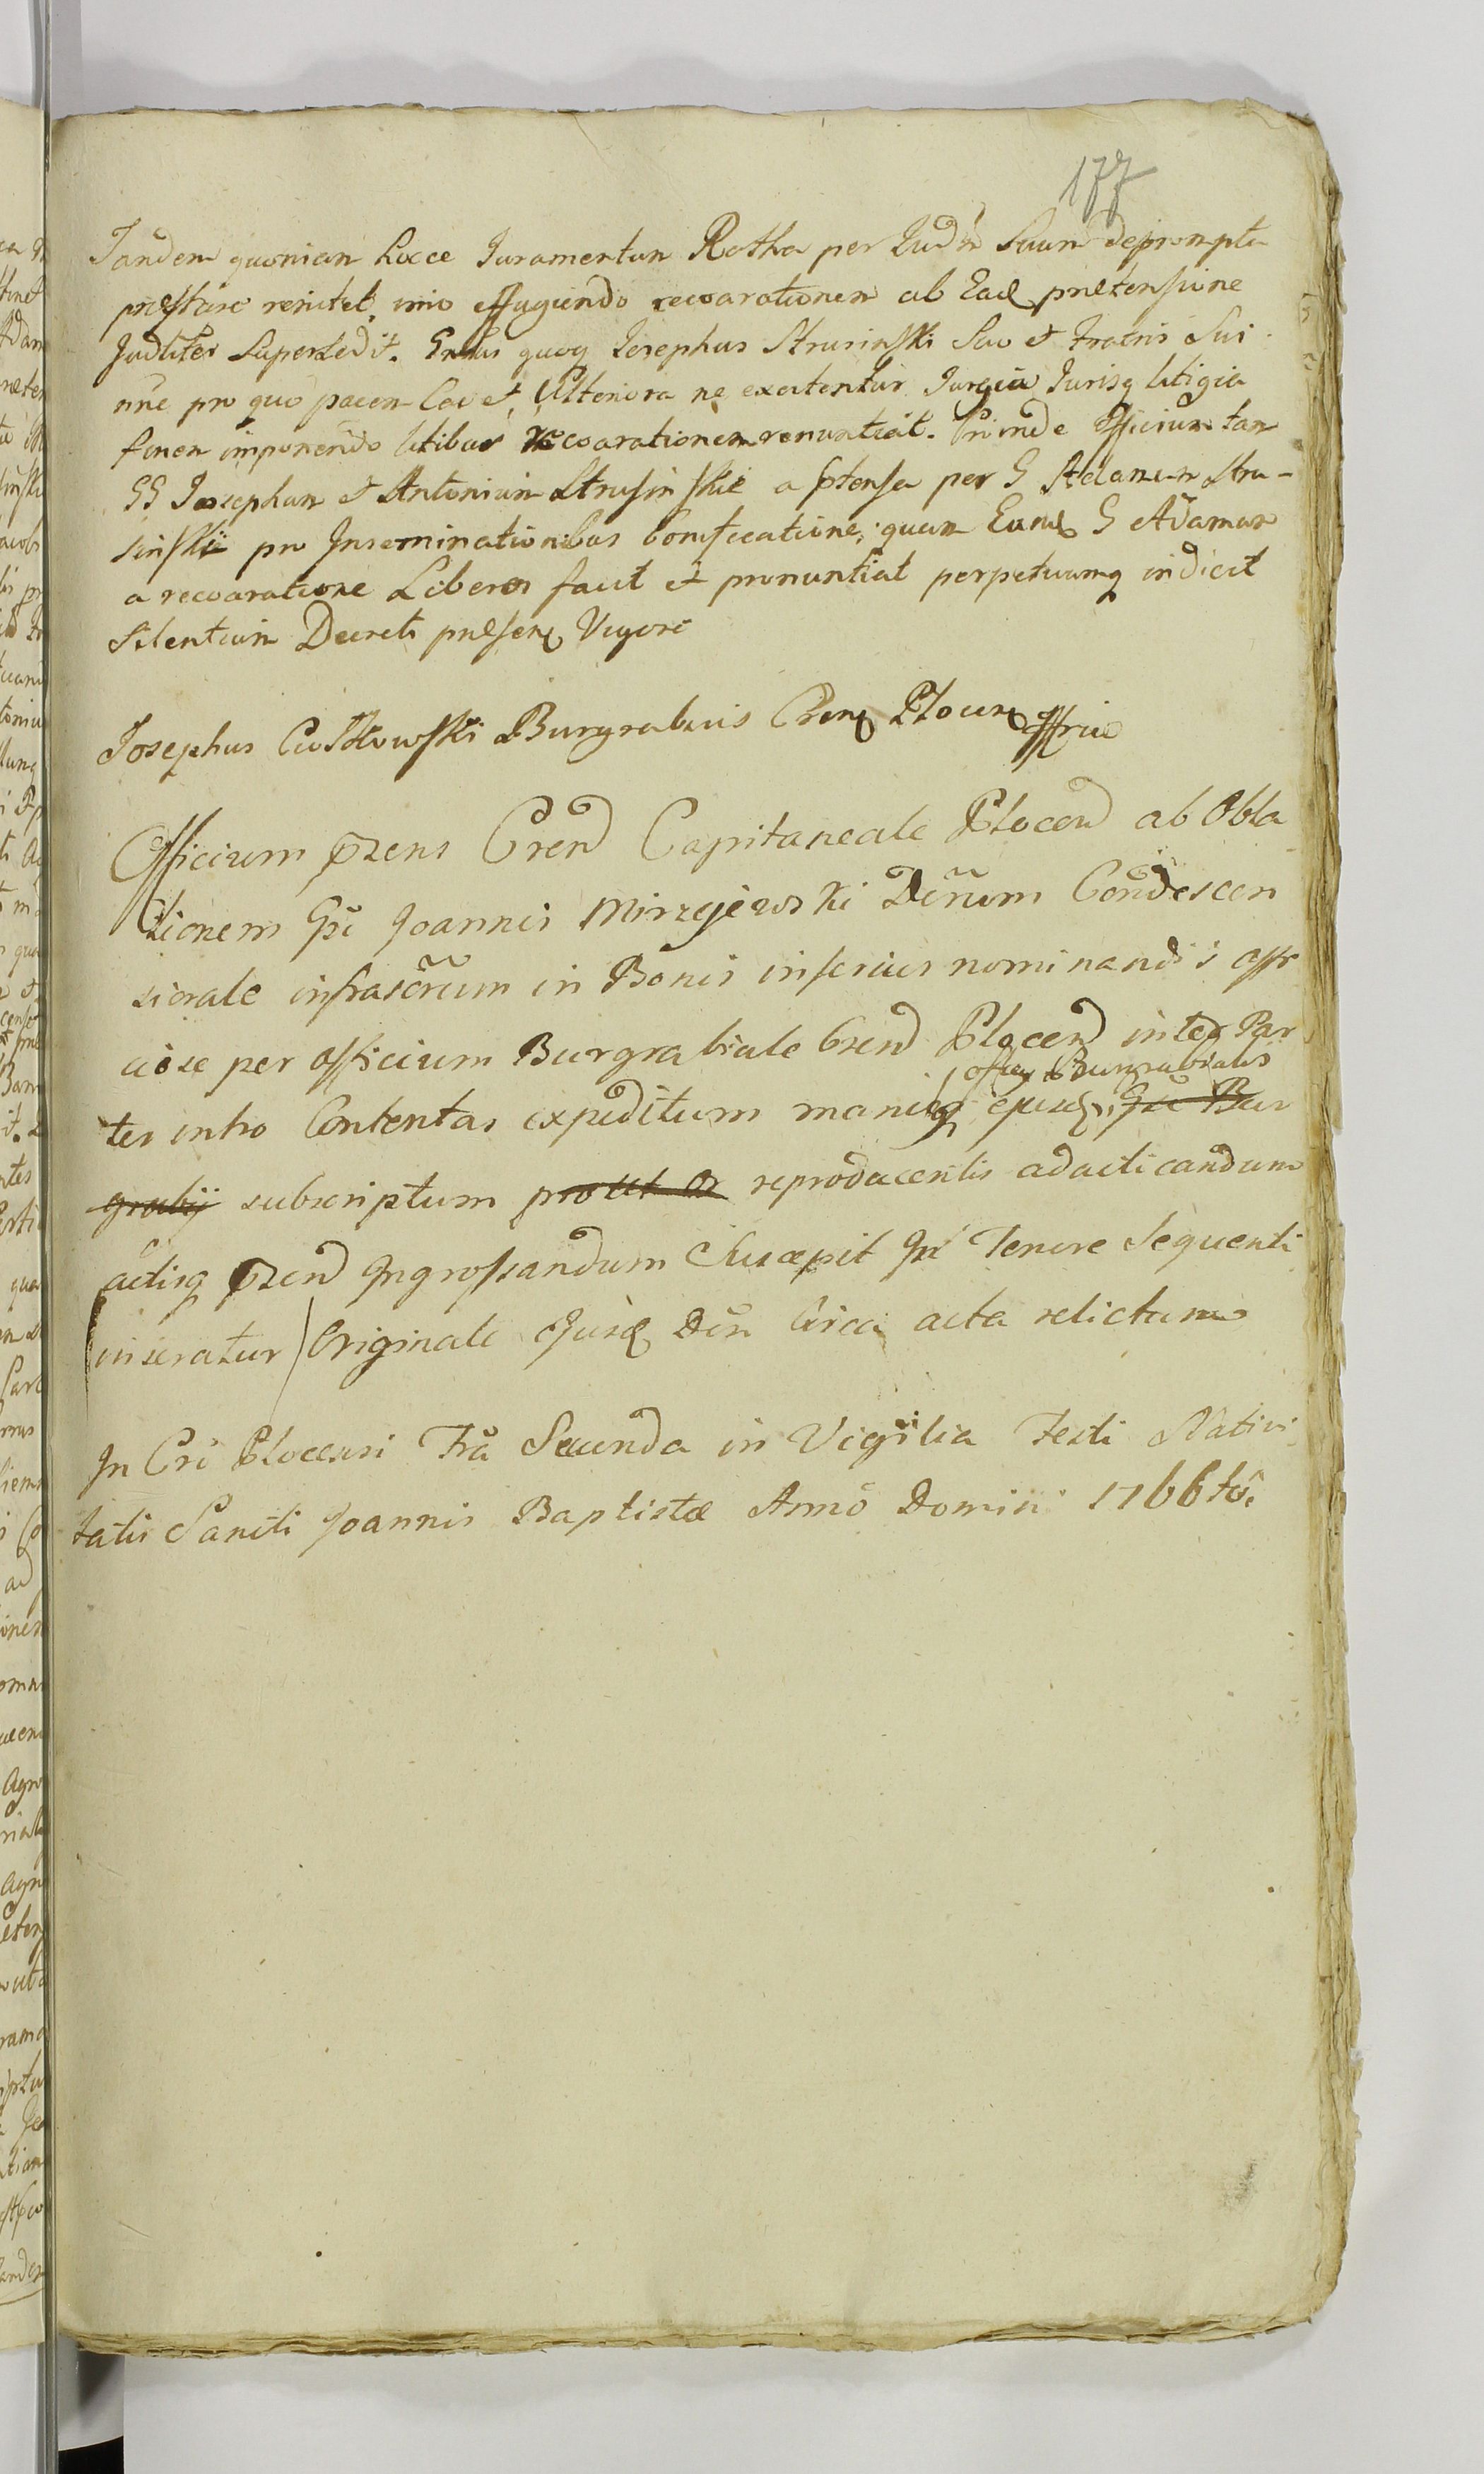 177
Tandem quoniam hocce Juramentum Rotha per Judm Suum deprompta
præstare renitet, imo effugiendo recoarationem ab Eade prætensione
Judliter Supersedit. Grsus quoq Josephus Strusinski Suo et Fratris Sui
nne pro quo pacem cavet, Ulteriora ne excitentur Jurgia Jurisq litigia
finem imponendo litibus recoarationem renuntiat. Proinde Officium tam
GG Josephum et Antonium Strusinskie a ptensa per G Adamum Stru-
sinski pro Inseminationibus bonificatione, quam Eund G Adamum
a recoaratione Liberos facit et pronuntiat perpetuumq indicit
Silentium Decreti præsens Vigore
Josephus Burgrabius Cren Plocen mpria
Officium przens Cren Capitaneale Plocen ab Obla
tionem Gsi Joannis Mirzejewski Dcrum Condescen
sionale infrascrum in Bonis inferius nominandis offi
ciose per officium Burgrabiale Cren Plocen inter Par
offcy Burgrabialis
tes intro Contentas expeditum manuq ejusd Gsi Bur
grabij subscriptum prout or reproducentis adacticandum
actisq przen Ingrossandum Suscepit In Tenore Sequenti
inseratur Originale Ejusd Dcri circa acta relictum
In Cri Plocensi Fria Secunda in Vigilia Festi Nativi
tatis Sancti Joannis Baptistæ Anno Domini 1766to.